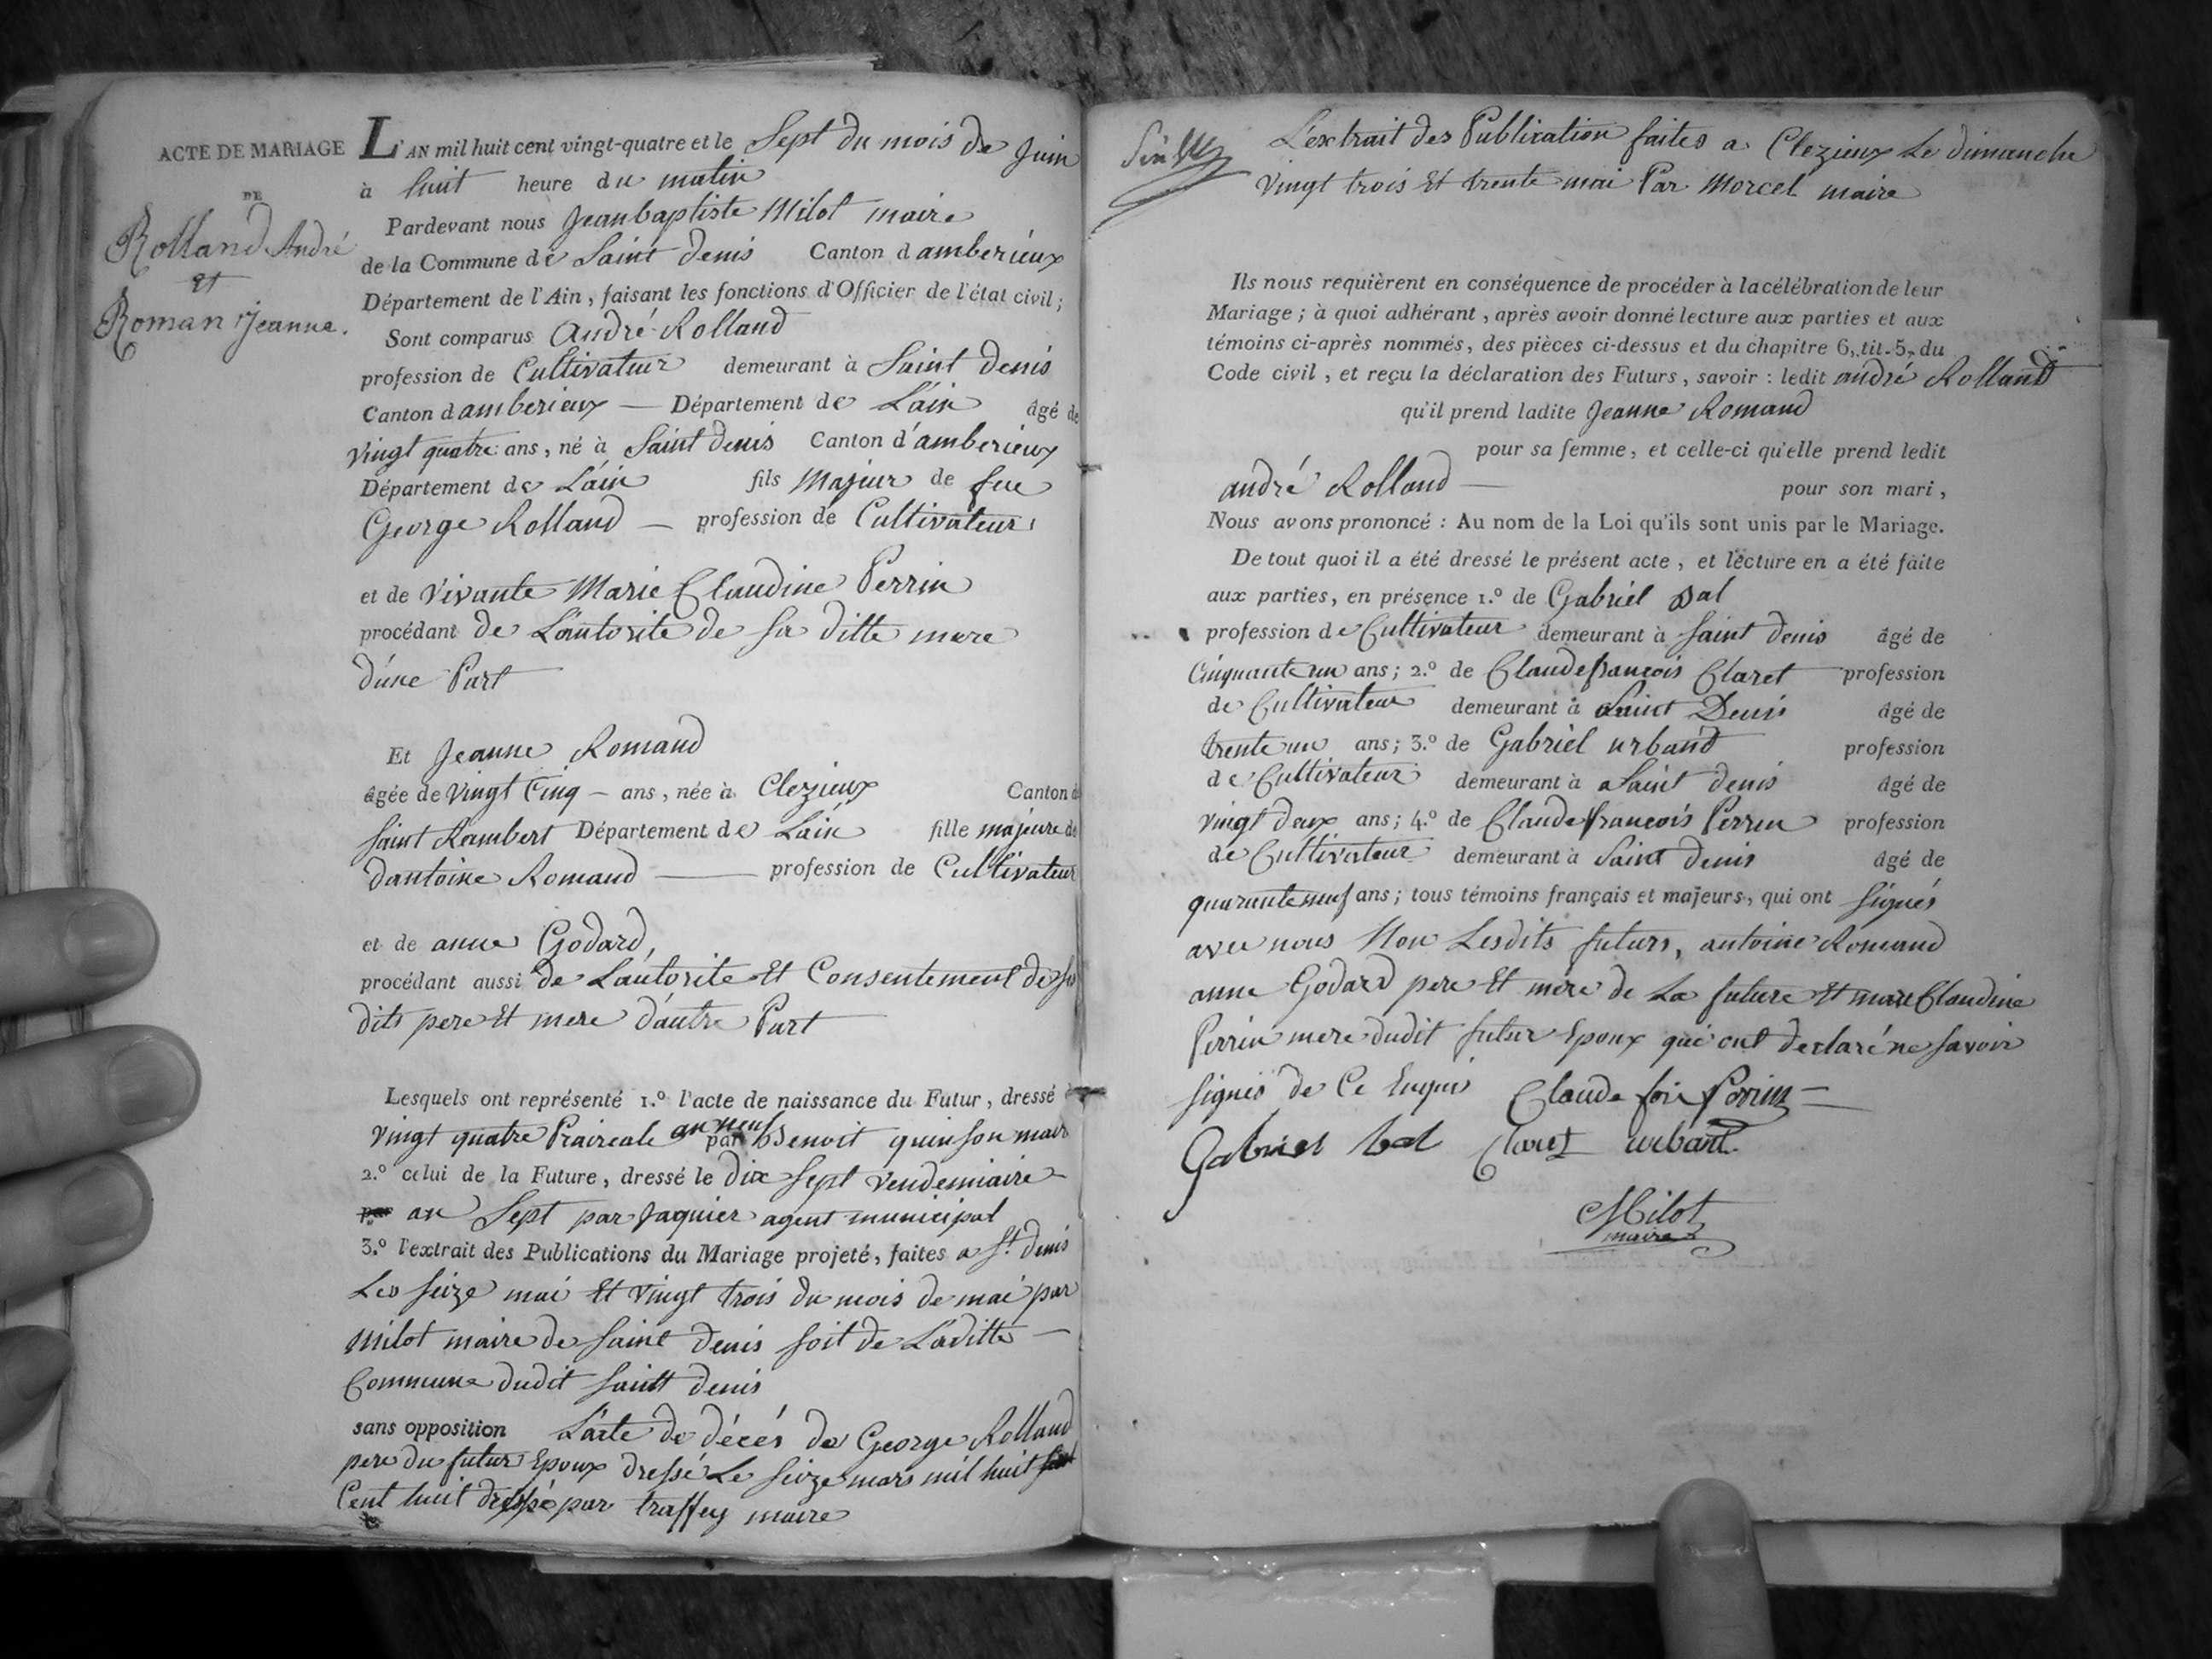 ACTE DE MARIAGE
DE
Rolland André
et
Roman Jeanne.
L'AN mil huit cent vingt-quatre et le Sept du mois de Juin
à huit heure du matin
Pardevant nous Jeanbaptiste Milot maire
de la Commune de Saint denis Canton d amberieux
Département de l'Ain, faisant les fonctions d'Officier de l'état civil ;
Sont comparus André Rolland
profession de Cultivateur demeurant à Saint denis
Canton d amberieux — Département de L'ain âgé de
vingt quatre ans, né à Saint denis Canton d'amberieux
Département de L'ain fils Majeur de feu
George Rolland — profession de Cultivateur
et de vivante Marie Claudine Perrin
procédant de L'autorite de sa ditte mere
d'une Part
Et Jeanne Romand
âgée de vingt Cinq — ans, née à Clezieux Canton de
Saint Rambert Département de L'ain fille majeure de
d'antoine Romand — profession de Cultivateur
et de anne Godard,
procédant aussi de L'autorite Et Consentement de ses
dits pere Et mere d'autre Part
Lesquels ont représenté 1.º l'acte de naissance du Futur, dressé
vingt quatre Praireale an neuf par Benoit quinson maire
2.º celui de la Future, dressé le dix Sept vendemiaire
par an Sept par Jaquier agent municipal
3.º l'extrait des Publications du Mariage projeté, faites a St. denis
Les seize mai Et vingt trois du mois de mai par
Milot maire de Saint denis soit de Laditte —
Commune dudit Saint denis
sans opposition L'acte de décés de George Rolland
pere du futur Epoux dressé Le seize mars mil huit
Cent huit dressé par traffey maire
L'extrait des Publication faites a Clezieux Le dimanche
vingt trois Et trente mai Par Morcel maire
Ils nous requièrent en conséquence de procéder à la célébration de leur
Mariage ; à quoi adhérant, après avoir donné lecture aux parties et aux
témoins ci-après nommés, des pièces ci-dessus et du chapitre 6, tit. 5, du
Code civil, et reçu la déclaration des Futurs, savoir : ledit andré Rolland
qu'il prend ladite Jeanne Romand
pour sa femme, et celle-ci qu'elle prend ledit
andré Rolland — pour son mari,
Nous avons prononcé : Au nom de la Loi qu'ils sont unis par le Mariage.
De tout quoi il a été dressé le présent acte, et lecture en a été faite
aux parties, en présence 1.º de Gabriel Bal
profession de Cultivateur demeurant à Saint denis âgé de
Cinquante un ans ; 2.º de Claudefrancois Claret profession
de Cultivateur demeurant à Saint Denis âgé de
trente un ans ; 3.º de Gabriel urband profession
de Cultivateur demeurant à Saint denis âgé de
vingt deux ans ; 4.º de Claudefrancois Perrin profession
de Cultivateur demeurant à Saint denis âgé de
quarante neuf ans ; tous témoins français et majeurs, qui ont signés
avec nous Non Lesdits futurs, antoine Romand
anne Godard pere Et mére de La future Et marie Claudine
Perrin mere dudit futur Epoux qui ont declaré ne savoir
signés de Ce Enquis Claude foi Perrin —
Gabriel bal Claret urband
Milot
maire